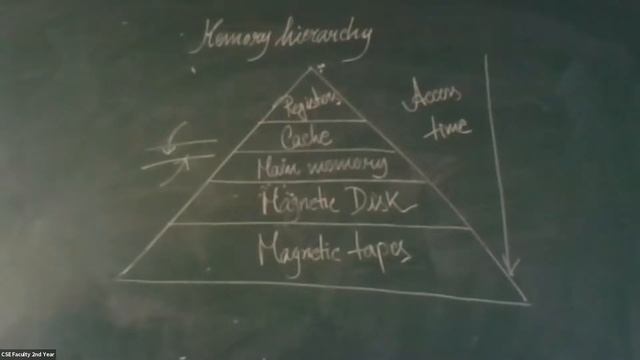 Memory hierarchy
Registers
Cache
Main memory
Magnetic Disk
Magnetic tapes
Access
time
CSE Faculty 2nd Year